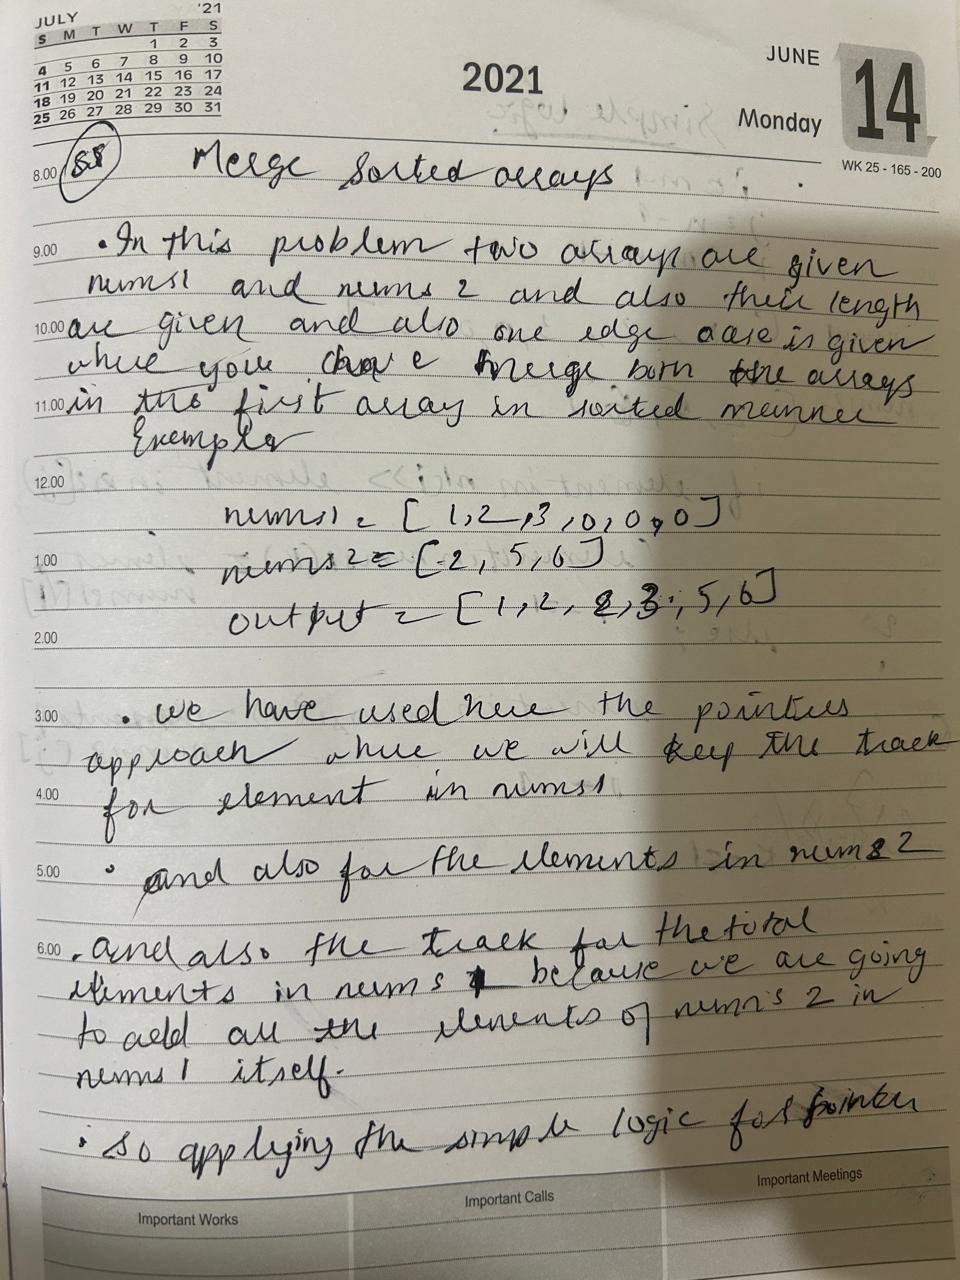 JULY '21
S M T W T F S
1 2 3
4 5 6 7 8 9 10
11 12 13 14 15 16 17
18 19 20 21 22 23 24
25 26 27 28 29 30 31
2021
JUNE
Monday
14
WK 25 - 165 - 200
8.00 88 Merge Sorted arrays
9.00 • In this problem two arrays are given
nums1 and nums 2 and also their length
10.00 are given and also one edge case is given
where you have merge both the arrays
11.00 in the first array in sorted manner
Example
12.00
nums1 = [1,2,3,0,0,0]
1.00 nums2 = [2,5,6]
output = [1,2,2,3,5,6]
2.00
3.00 • we have used here the pointers
approach where we will keep the track
4.00 for element in nums1
5.00 • and also for the elements in nums2
6.00 • and also the track for the total
elements in nums 1 because we are going
to add all the elements of nums 2 in
nums1 itself.
• so applying the simple logic for pointer
Important Works
Important Calls
Important Meetings